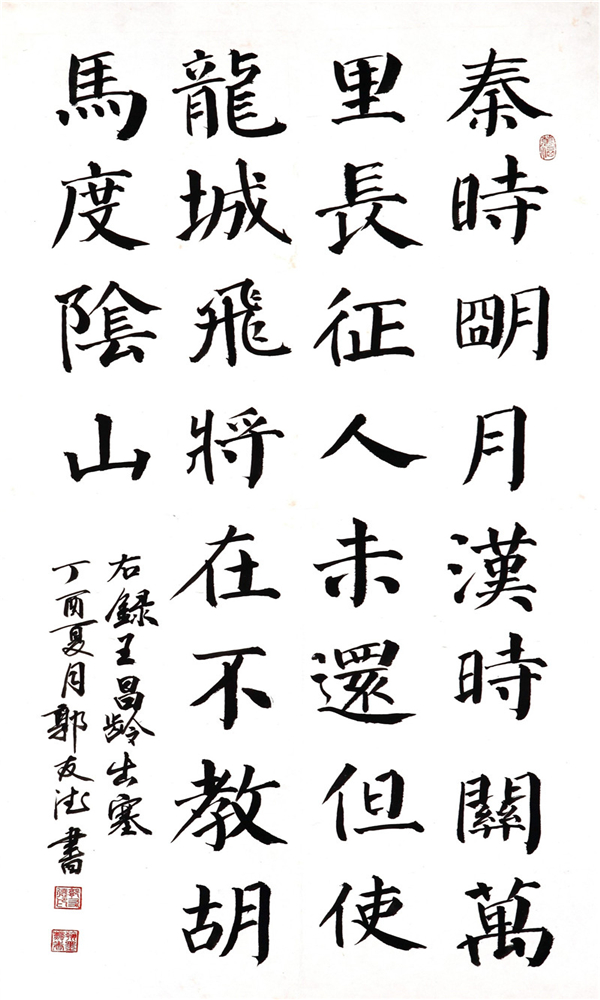 秦時朙月漢時關萬
里長征人未還但使
龍城飛將在不教胡
馬度陰山
右録王昌龄出塞
丁酉夏月郭友池書